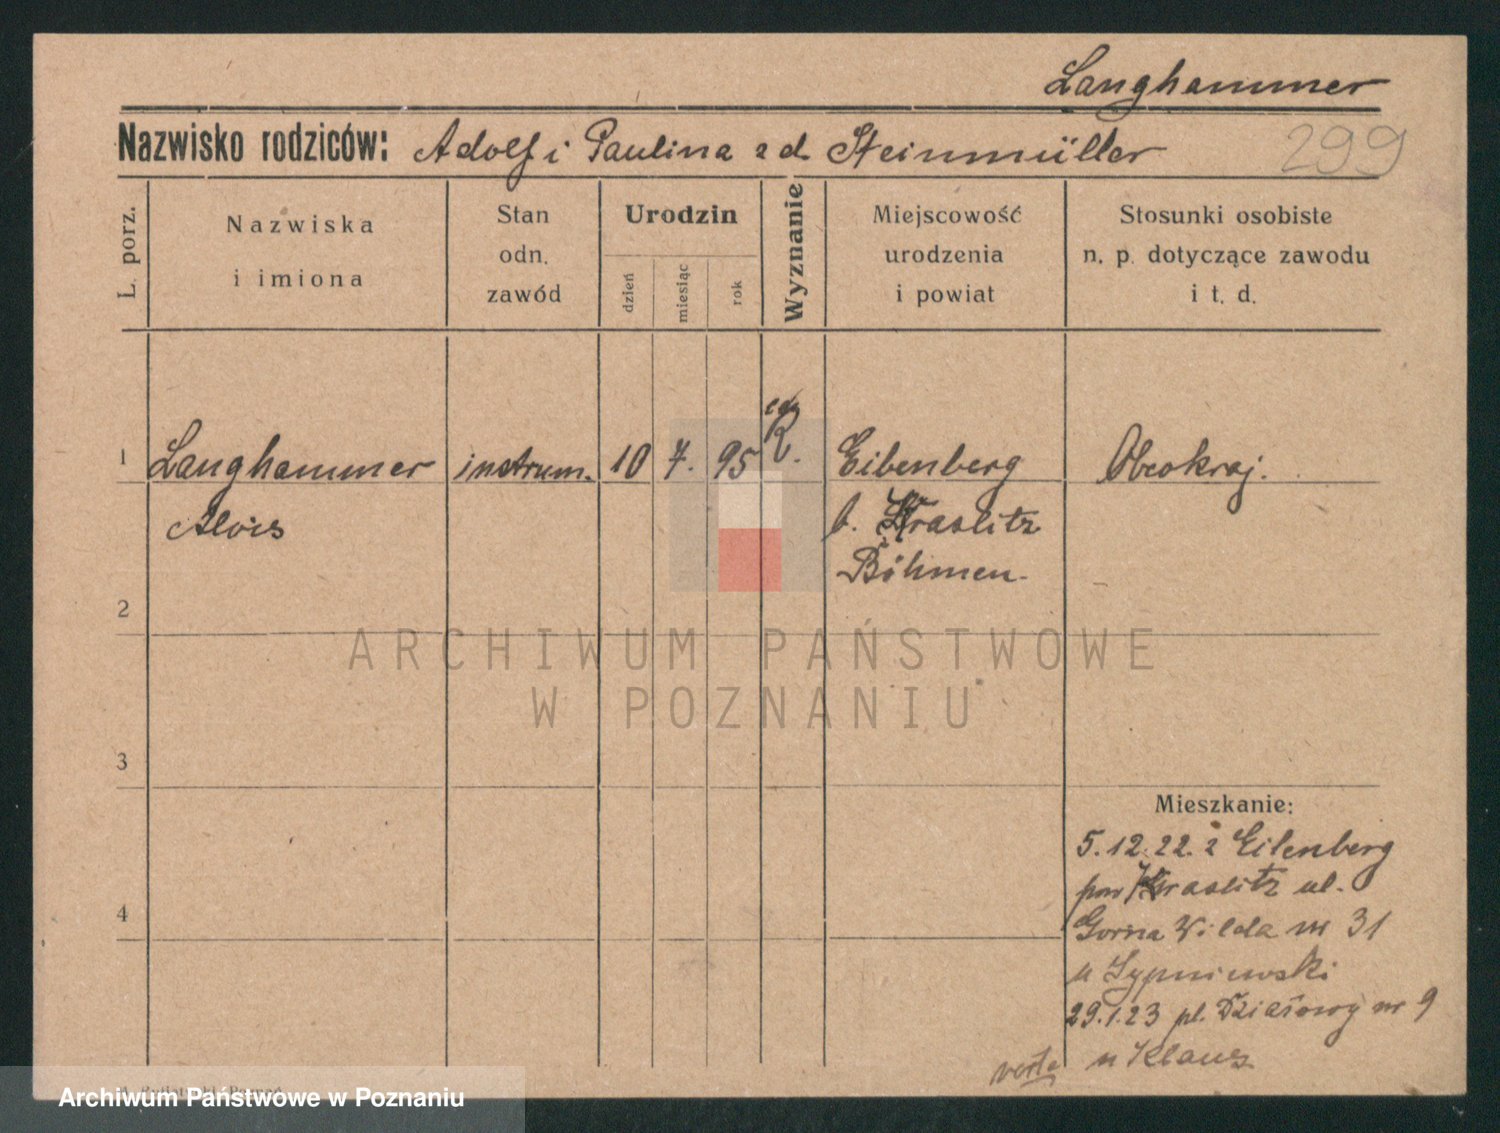 Langhammer
Nazwisko rodziców: Adolf i Paulina zd. Steinmüller
299
L. porz.
Nazwiska
i imiona
Stan
odn.
zawód
Urodzin
dzień
miesiąc
rok
Wyznanie
Miejscowość
urodzenia
i powiat
Stosunki osobiste
n. p. dotyczące zawodu
i t. d.
1 Langhammer instrum. 10 7. 95 R. Eibenberg Obcokraj.
Alois b. Kraslitz
Böhmen.
2
3
4
ARCHIWUM PAŃSTWOWE
W POZNANIU
Mieszkanie:
5.12.22. z Eilenberg
pow Kraslitz ul.
Gorna Wilda nr 31
u Sypniewski
29.1.23 pl. Działowy nr 9
u Klaus
verte
Archiwum Państwowe w Poznaniu